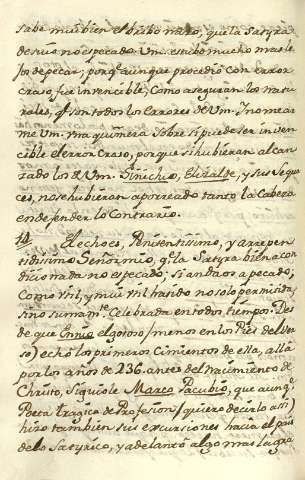 sabe mui bien el bribonazo, que la Satyra
de suio no es pecado. Vm. estubo mucho mas le
jos de pecar; porq. aunque procedió con error
craso, fue invencible; Como aseguran los Natu
rales, q. son todos los Errores de Vm.
me Vm. una quimera sobre si puede ser inven
cible el error Craso, porque si hubieran alcan
zado los de Vm. Elizalde, y sus Sequa
ces, no se hubieran aporreado tanto la Cabeza
en defender lo Contrario.
14 El echo es, Penitentissimo, y arrepen
tidissimo Señor mio, q. la Satyra bien acon
dicionada no es pecado; si anda os a pecado,
Como util, y mui util ha sido no solo permitida,
sino sumamte. Celebrada en todos tiempos. Des
de que Ennio el gotoso (menos en los Pies del Ver
so) echó los primeros Cimientos de ella, allá
por los años de 236. antes del Nacimiento de
Christo, Siguiole Marco Pacubio, que aunq.
Poeta tragico de Profesion (quiero decirlo assi)
hizo tambien sus excursiones hacia el pais
de lo Satyrico, y adelantó algo mas la gra